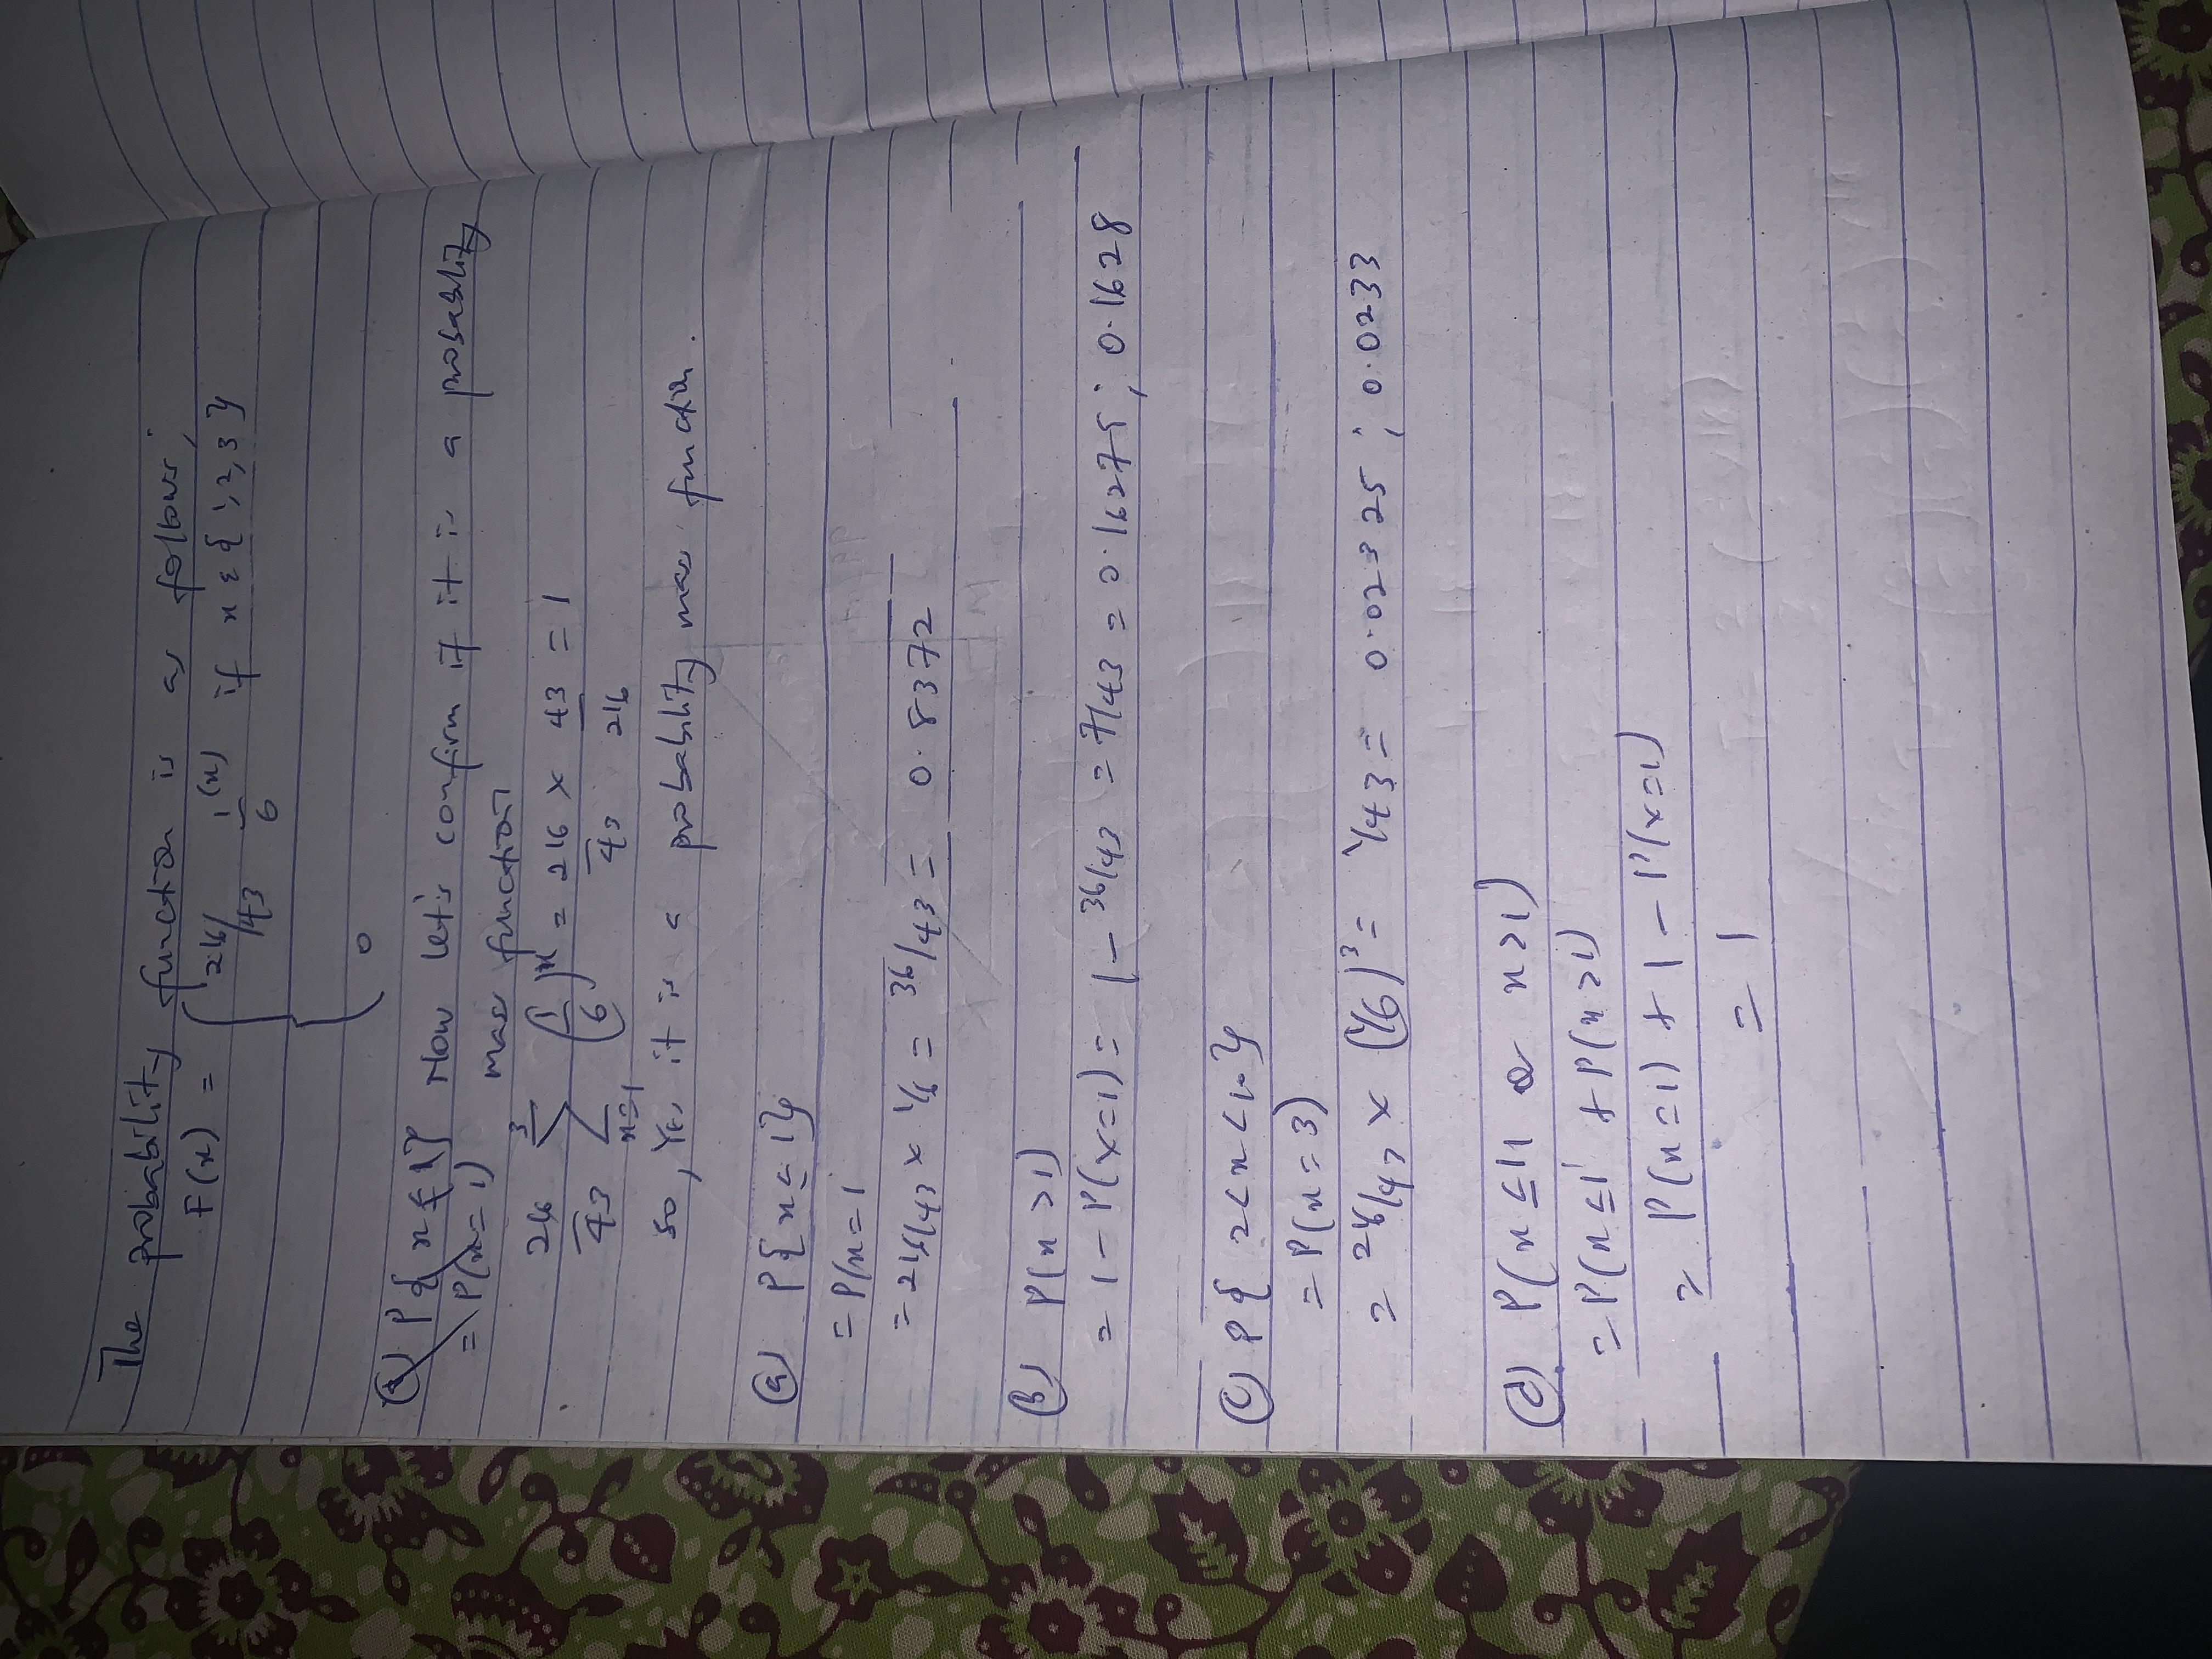 The probability function is as follows;
F(x) = { 216/43 1/6 (x) if x ε { 1, 2, 3 }
0
(a) P{ x ≤ 1} Now let's confirm if it is a probability
= P(x=1) mass function
216/43 3 Σ x=1 (1/6)^x = 216/43 × 43/216 = 1
so, Yes it is a probability mass function.
(a) P{ x ≤ 1}
= P(x=1
= 216/43 × 1/6 = 36/43 = 0.8372
(b) P(x > 1)
= 1 - P(x=1) = 1 - 36/43 = 7/43 = 0.16275; 0.1628
(c) P{ 2 < x < 10}
= P(x = 3)
= 216/43 × (1/6)^3 = 1/43 = 0.02325; 0.0233
(d) P(x ≤ 1 or x > 1)
= P(x ≤ 1 + P(x > 1)
= P(x = 1) + 1 - P(x=1)
= 1